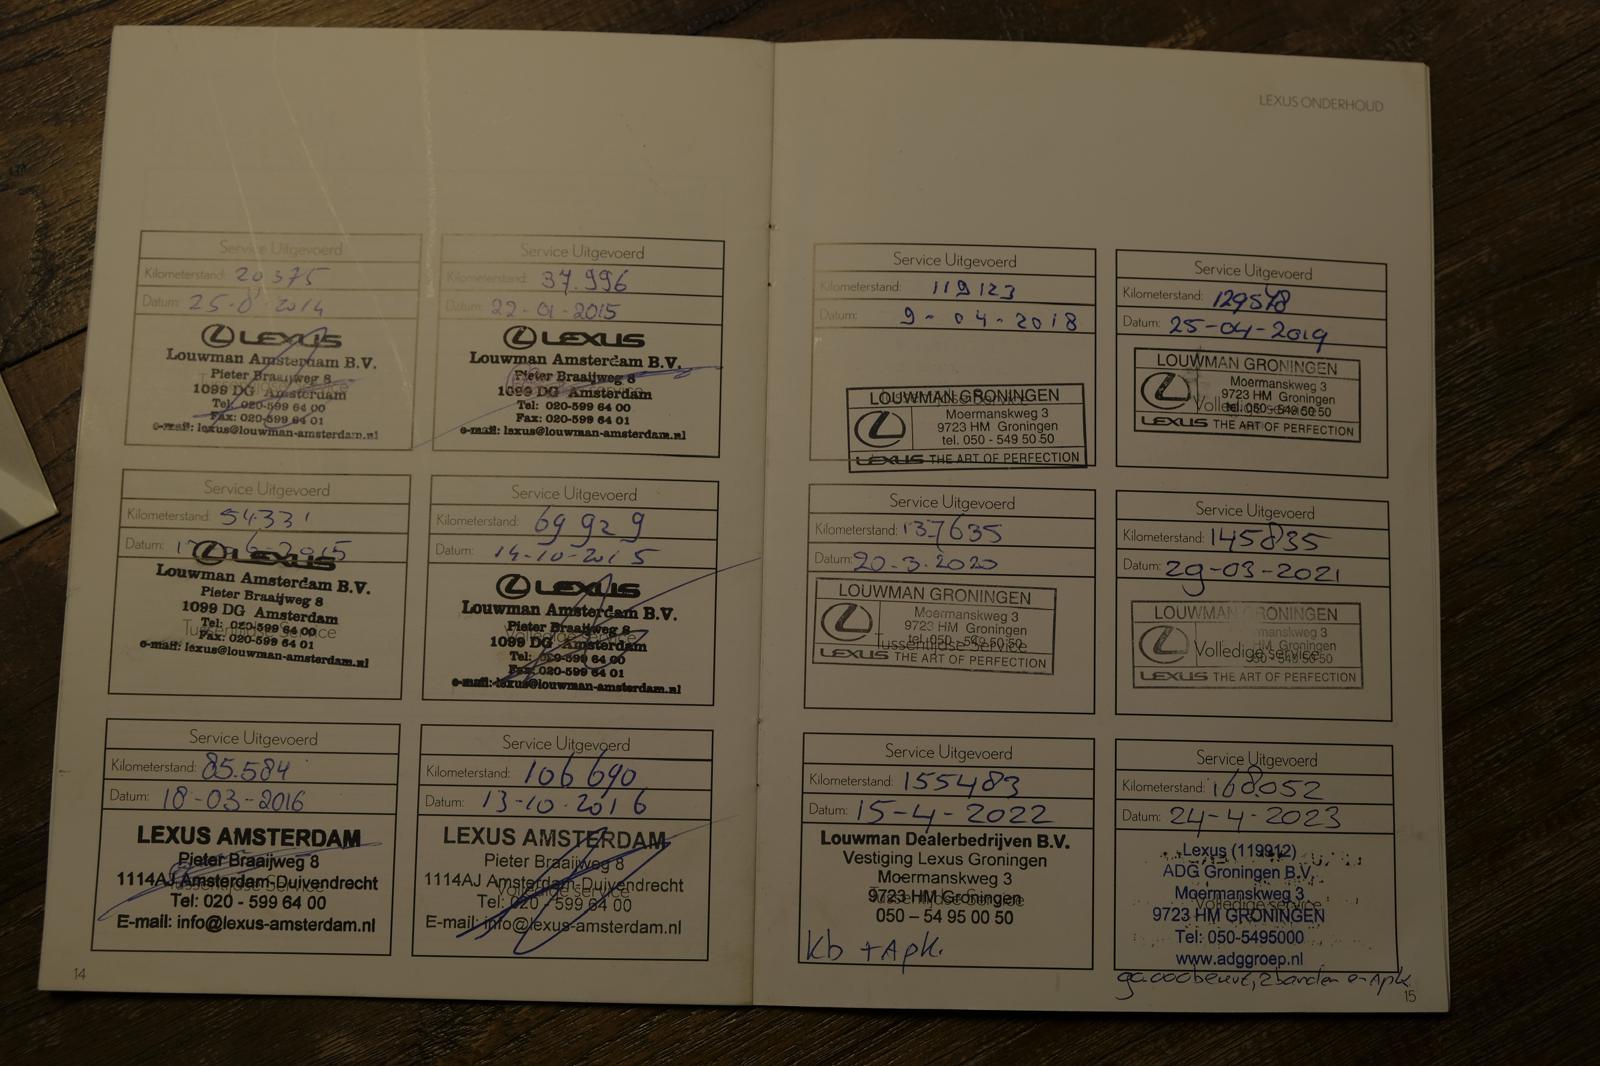 LEXUS ONDERHOUD
Service Uitgevoerd
Kilometerstand: 20375
Datum: 2014
LEXUS
Louwman Amsterdam B.V.
Pieter Braaijweg 8
1099 DG Amsterdam
Tel: 020-599 64 00
Fax: 020-599 64 01
e-mail: lexus@louwman-amsterdam.nl
Service Uitgevoerd
Kilometerstand: 37.996
Datum: 22-01-2015
LEXUS
Louwman Amsterdam B.V.
Pieter Braaijweg 8
1099 DG Amsterdam
Tel: 020-599 64 00
Fax: 020-599 64 01
e-mail: lexus@louwman-amsterdam.nl
Service Uitgevoerd
Kilometerstand: 54.331
Datum: 6-2015
LEXUS
Louwman Amsterdam B.V.
Pieter Braaijweg 8
1099 DG Amsterdam
Tel: 020-599 64 00
Tussentijdse Service
Fax: 020-599 64 01
e-mail: lexus@louwman-amsterdam.nl
Service Uitgevoerd
Kilometerstand: 69929
Datum: 14-10-2015
LEXUS
Louwman Amsterdam B.V.
Pieter Braaijweg 8
Volledige service
1099 DG Amsterdam
Tel: 020-599 64 00
Fax: 020-599 64 01
e-mail: lexus@louwman-amsterdam.nl
Service Uitgevoerd
Kilometerstand: 85.584
Datum: 18-03-2016
LEXUS AMSTERDAM
Pieter Braaijweg 8
1114AJ Amsterdam-Duivendrecht
Tussentijdse Service
Tel: 020 - 599 64 00
E-mail: info@lexus-amsterdam.nl
Service Uitgevoerd
Kilometerstand: 106690
Datum: 13-10-2016
LEXUS AMSTERDAM
Pieter Braaijweg 8
1114AJ Amsterdam-Duivendrecht
Volledige service
Tel: 020 - 599 64 00
E-mail: info@lexus-amsterdam.nl
14
Service Uitgevoerd
Kilometerstand: 119123
Datum: 9-04-2018
LOUWMAN GRONINGEN
Moermanskweg 3
9723 HM Groningen
tel. 050 - 549 50 50
LEXUS THE ART OF PERFECTION
Service Uitgevoerd
Kilometerstand: 129578
Datum: 25-04-2019
LOUWMAN GRONINGEN
Moermanskweg 3
9723 HM Groningen
Volledige service
tel. 050 - 549 50 50
LEXUS THE ART OF PERFECTION
Service Uitgevoerd
Kilometerstand: 137635
Datum: 20-3-2020
LOUWMAN GRONINGEN
Moermanskweg 3
9723 HM Groningen
tel. 050 - 549 50 50
Tussentijdse Service
LEXUS THE ART OF PERFECTION
Service Uitgevoerd
Kilometerstand: 145835
Datum: 29-03-2021
LOUWMAN GRONINGEN
manskweg 3
HM Groningen
Volledige service
050 - 549 50 50
LEXUS THE ART OF PERFECTION
Service Uitgevoerd
Kilometerstand: 155483
Datum: 15-4-2022
Louwman Dealerbedrijven B.V.
Vestiging Lexus Groningen
Moermanskweg 3
9723 HM Groningen
Tussentijdse Service
050 – 54 95 00 50
Kb + Apk.
Service Uitgevoerd
Kilometerstand: 168.052
Datum: 24-4-2023
Lexus (119912)
ADG Groningen B.V.
Moermanskweg 3
Volledige service
9723 HM GRONINGEN
Tel: 050-5495000
www.adggroep.nl
2 banden en Apk
15